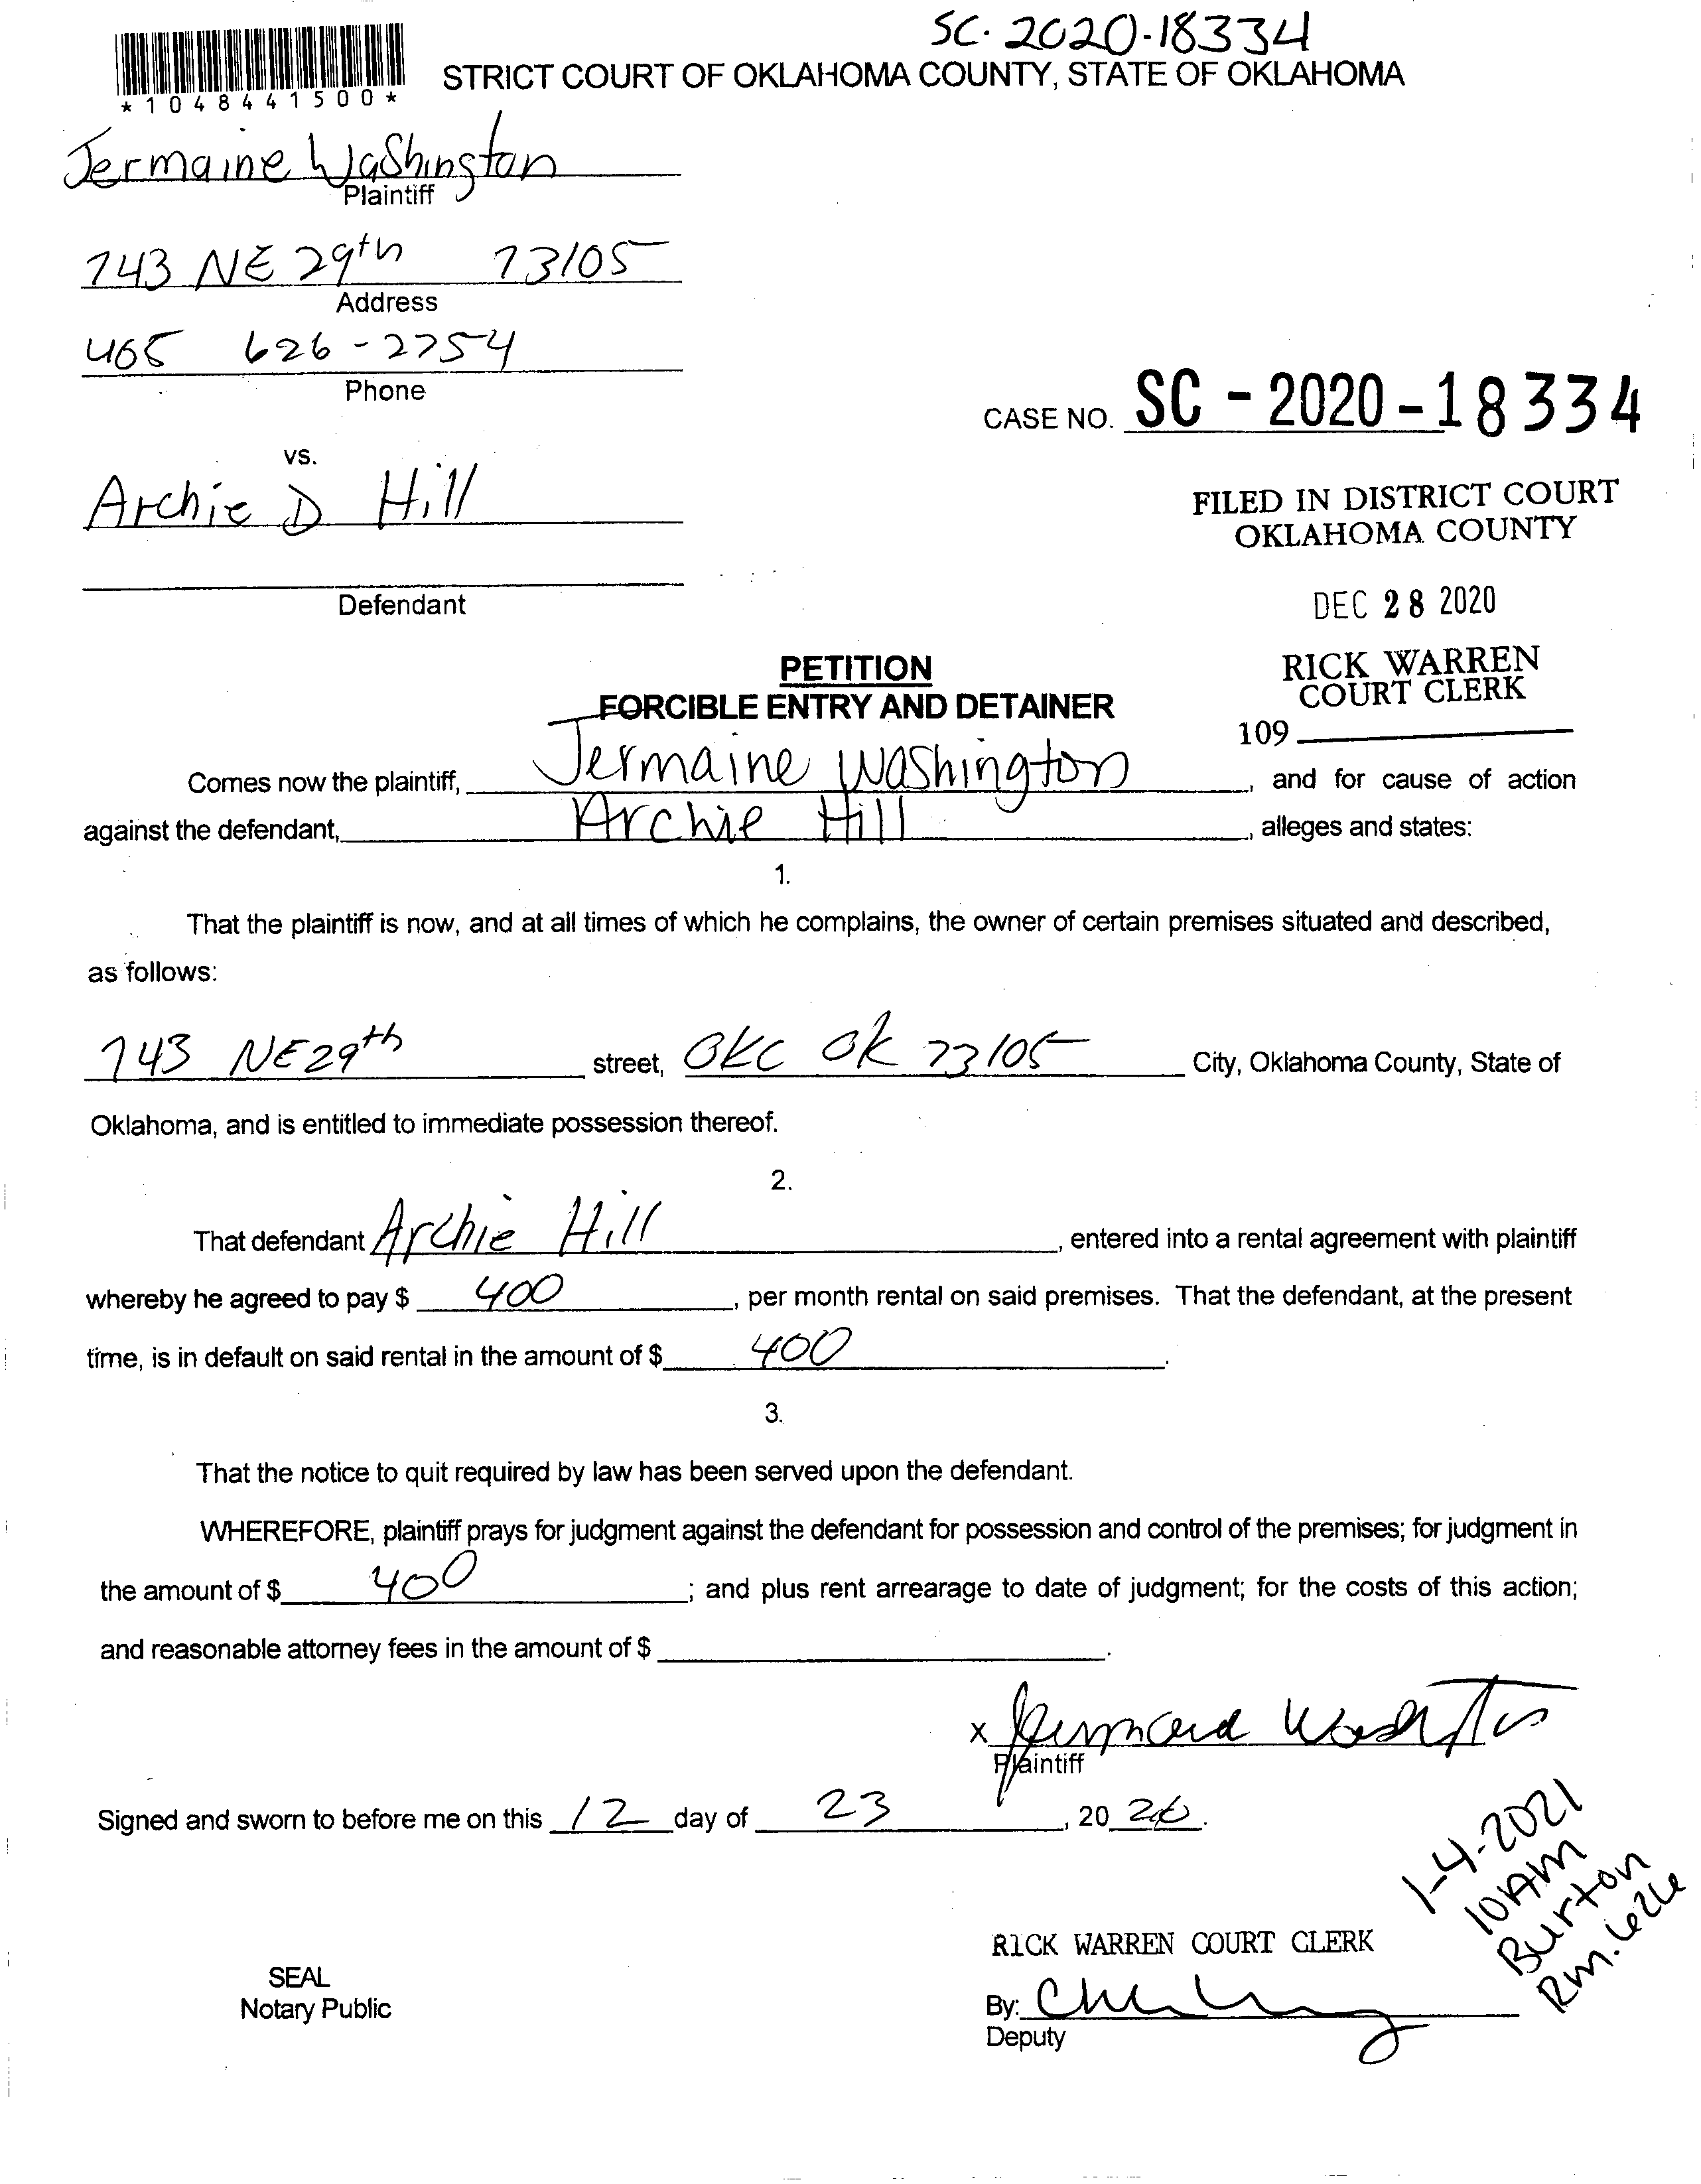 SC-2020-18334
*1048441500*
STRICT COURT OF OKLAHOMA COUNTY, STATE OF OKLAHOMA
Jermaine Washington
Plaintiff
743 NE 29th 73105
Address
405 626-2754
Phone
CASE NO. SC - 2020 - 18334
vs.
Archie D Hill
FILED IN DISTRICT COURT
OKLAHOMA COUNTY
Defendant
DEC 28 2020
PETITION
RICK WARREN
COURT CLERK
FORCIBLE ENTRY AND DETAINER
109
Comes now the plaintiff, Jermaine Washington, and for cause of action
against the defendant, Archie Hill, alleges and states:
1.
That the plaintiff is now, and at all times of which he complains, the owner of certain premises situated and described,
as follows:
743 NE 29th street, OKC OK 73105 City, Oklahoma County, State of
Oklahoma, and is entitled to immediate possession thereof.
2.
That defendant Archie Hill, entered into a rental agreement with plaintiff
whereby he agreed to pay $ 400, per month rental on said premises. That the defendant, at the present
time, is in default on said rental in the amount of $ 400.
3.
That the notice to quit required by law has been served upon the defendant.
WHEREFORE, plaintiff prays for judgment against the defendant for possession and control of the premises; for judgment in
the amount of $ 400; and plus rent arrearage to date of judgment; for the costs of this action;
and reasonable attorney fees in the amount of $ .
x
Plaintiff
Signed and sworn to before me on this 12 day of 23, 20 20.
1-4-2021
10AM
Burton
Rm. 626
RICK WARREN COURT CLERK
SEAL
Notary Public
By:
Deputy